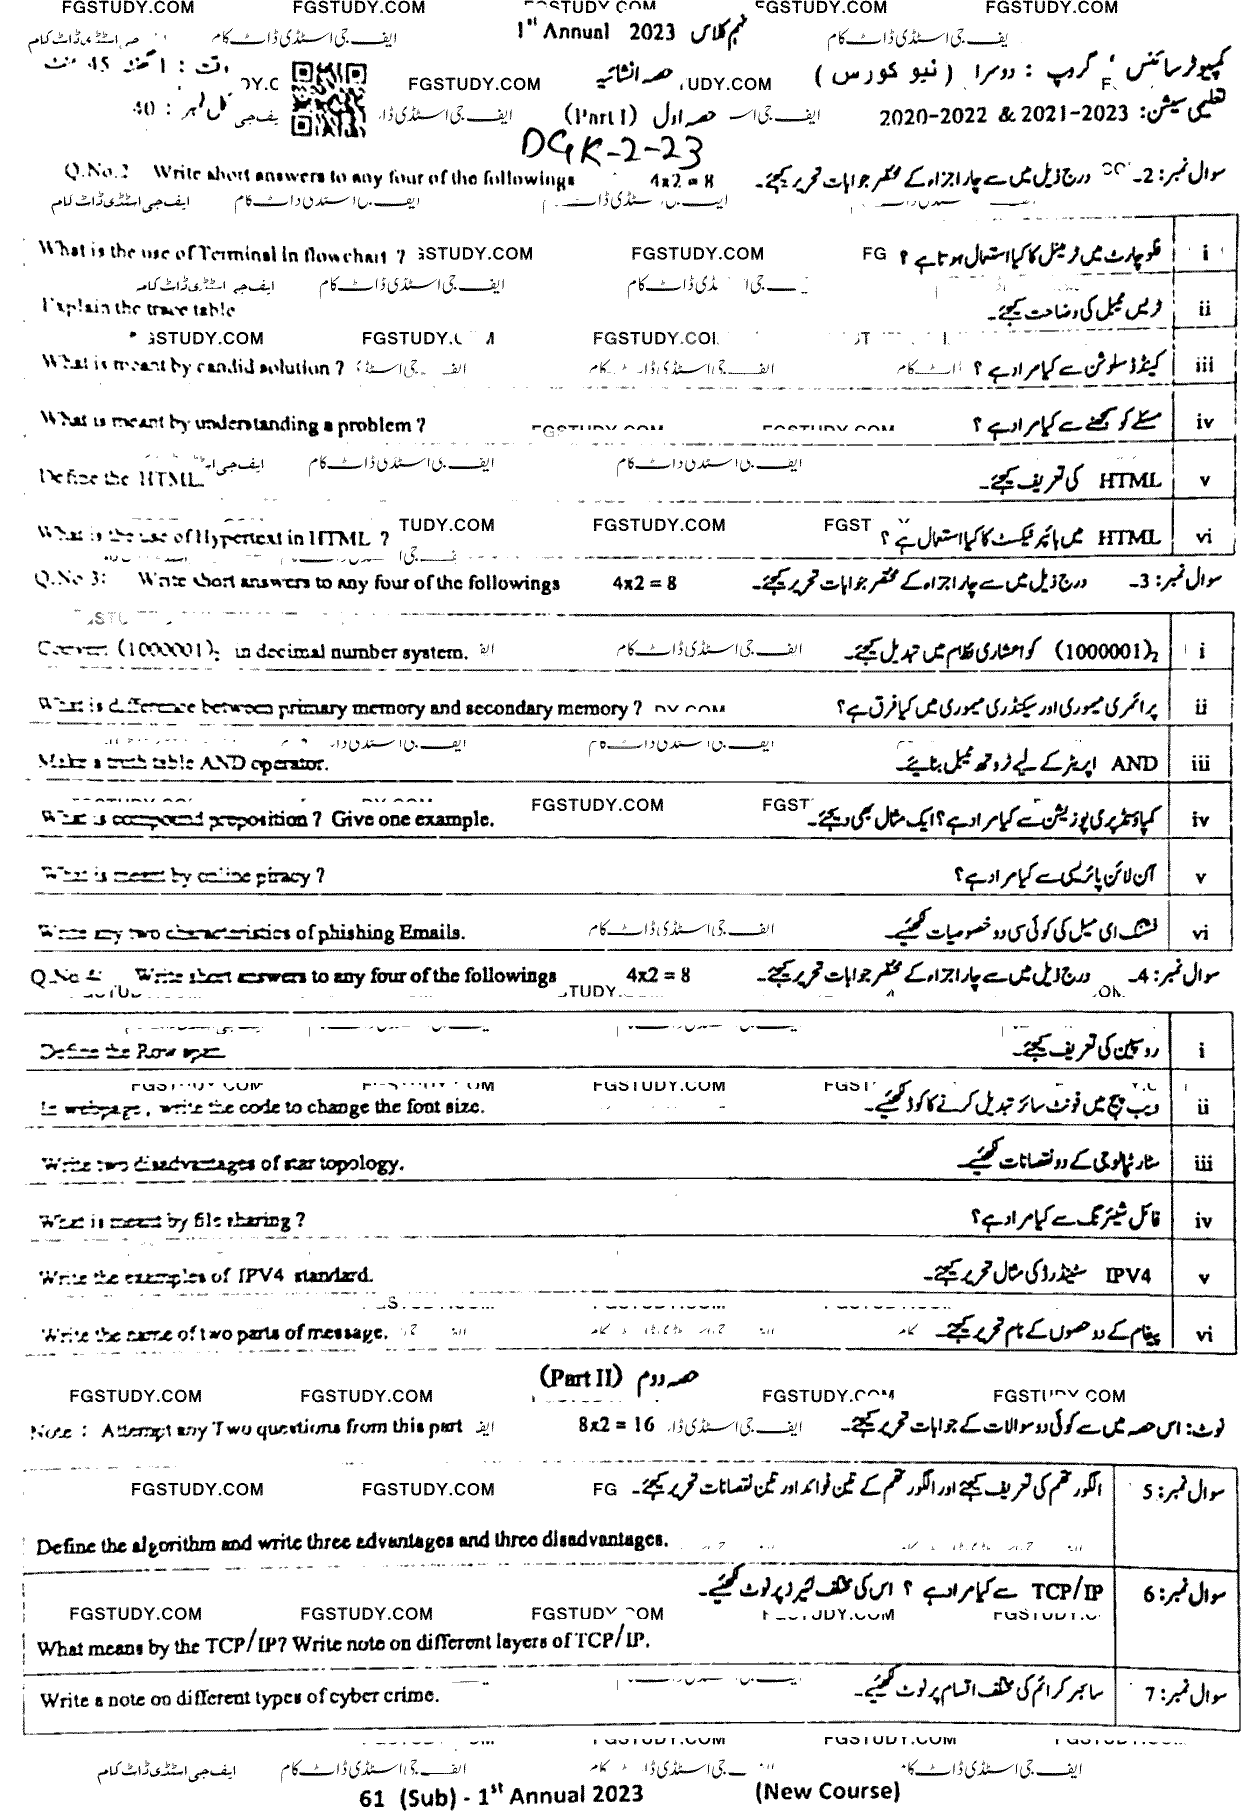 FGSTUDY.COM FGSTUDY.COM FGSTUDY.COM FGSTUDY.COM
1st Annual 2023 نہم کلاس
کمپیوٹر سائنس گروپ : دوسرا (نیو کورس) حصہ انشائیہ وقت : 1 گھنٹہ 45 منٹ
FGSTUDY.COM
تعلیمی سیشن: 2021-2023 & 2020-2022 حصہ اول (Part I) کل نمبر : 40
DGK-2-23
Q.No.2 Write short answers to any four of the followings 4x2 = 8 سوال نمبر: 2۔ درج ذیل میں سے چار اجزاء کے مختصر جوابات تحریر کیجئے۔
ایف جی اسٹڈی ڈاٹ کام
What is the use of Terminal in flowchart ? فلوچارٹ میں ٹرمینل کا کیا استعمال ہوتا ہے ؟ i
Explain the trace table ٹریس ٹیبل کی وضاحت کیجئے۔ ii
FGSTUDY.COM
What is meant by candid solution ? کینڈڈ سلوشن سے کیا مراد ہے ؟ iii
What is meant by understanding a problem ? مسئلے کو سمجھنے سے کیا مراد ہے ؟ iv
Define the HTML. HTML کی تعریف کیجئے۔ v
What is the use of Hypertext in HTML ? HTML میں ہائپر ٹیکسٹ کا کیا استعمال ہے ؟ vi
Q.No 3: Write short answers to any four of the followings 4x2 = 8 سوال نمبر: 3۔ درج ذیل میں سے چار اجزاء کے مختصر جوابات تحریر کیجئے۔
Convert (1000001)2 in decimal number system. (1000001)2 کو اعشاری نظام میں تبدیل کیجئے۔ i
What is difference between primary memory and secondary memory ? پرائمری میموری اور سیکنڈری میموری میں کیا فرق ہے؟ ii
Make a truth table AND operator. AND اپریٹر کے لیے ٹروتھ ٹیبل بنایئے۔ iii
FGSTUDY.COM
What is compound preposition ? Give one example. کمپاؤنڈ پری پوزیشن سے کیا مراد ہے؟ ایک مثال بھی دیجئے۔ iv
What is meant by online piracy ? آن لائن پائریسی سے کیا مراد ہے؟ v
Write any two characteristics of phishing Emails. فشنگ ای میل کی کوئی سی دو خصوصیات لکھئیے۔ vi
Q.No 4: Write short answers to any four of the followings 4x2 = 8 سوال نمبر: 4۔ درج ذیل میں سے چار اجزاء کے مختصر جوابات تحریر کیجئے۔
Define the Row span. روسپین کی تعریف کیجئے۔ i
In webpage, write the code to change the font size. ویب پیج میں فونٹ سائز تبدیل کرنے کا کوڈ لکھئیے۔ ii
Write two disadvantages of star topology. سٹار ٹپالوجی کے دو نقصانات لکھئیے۔ iii
What is meant by file sharing ? فائل شیئرنگ سے کیا مراد ہے؟ iv
Write the examples of IPV4 standard. IPV4 سٹینڈرڈ کی مثال تحریر کیجئے۔ v
Write the name of two parts of message. پیغام کے دو حصوں کے نام تحریر کیجئے۔ vi
(Part II) حصہ دوم
FGSTUDY.COM FGSTUDY.COM FGSTUDY.COM FGSTUDY.COM
Note : Attempt any Two questions from this part 8x2 = 16 نوٹ: اس حصہ میں سے کوئی دو سوالات کے جوابات تحریر کیجئے۔
سوال نمبر: 5 الگورتھم کی تعریف کیجئے اور الگورتھم کے تین فوائد اور تین نقصانات تحریر کیجئے۔
FGSTUDY.COM FGSTUDY.COM
Define the algorithm and write three advantages and three disadvantages.
سوال نمبر: 6 TCP/IP سے کیا مراد ہے ؟ اس کی مختلف لیئرز پر نوٹ لکھئیے۔
FGSTUDY.COM FGSTUDY.COM FGSTUDY.COM
What means by the TCP/IP? Write note on different layers of TCP/IP.
Write a note on different types of cyber crime. سوال نمبر: 7 سائبر کرائم کی مختلف اقسام پر نوٹ لکھئیے۔
ایف جی اسٹڈی ڈاٹ کام
61 (Sub) - 1st Annual 2023 (New Course)